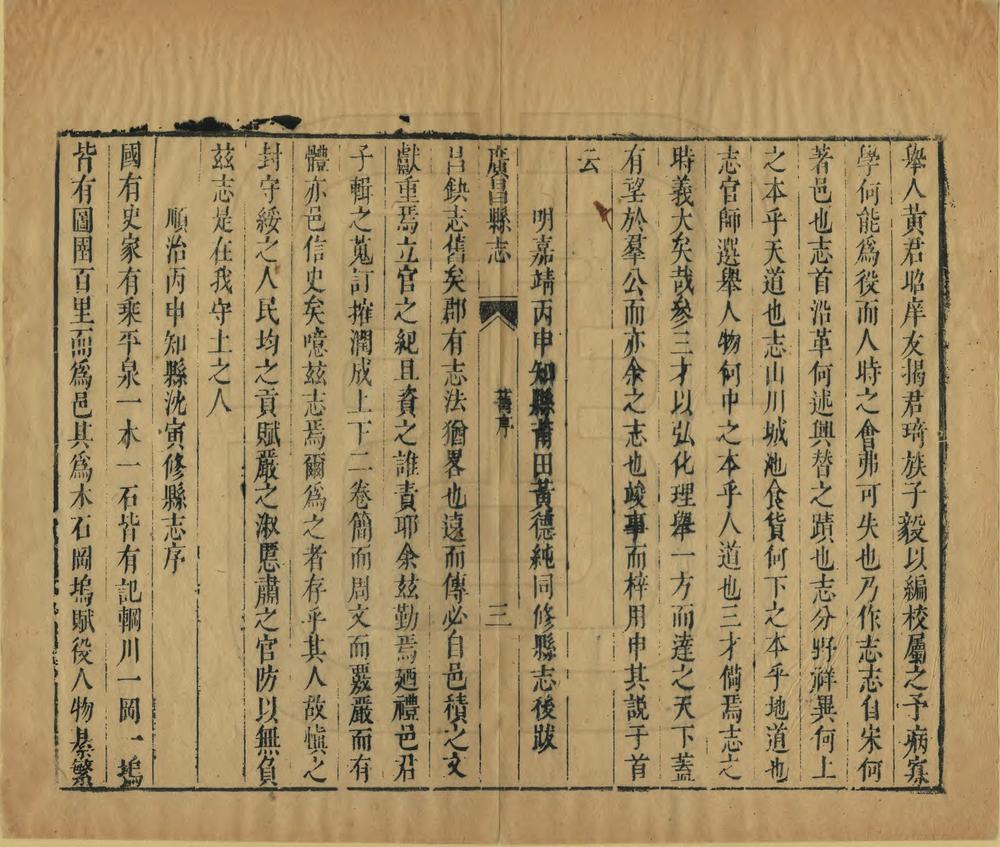 舉人黃君昭庠友揭君琦族子毅以編校屬之予病寡
學何能爲役而人時之會弗可失也乃作志志自宋何
著邑也志首沿革何述興替之蹟也志分野祥異何上
之本乎天道也志山川城池食貨何下之本乎地道也
志官師選舉人物何中之本乎人道也三才備焉志之
時義大矣哉參三才以弘化理舉一方而達之天下蓋
有望於羣公而亦余之志也竣事而梓用申其説于首
云
明嘉靖丙申知縣莆田黃德純同修縣志後跋
廣昌縣志
舊序
三
呂鈌志舊矣郡有志法猶畧也遠而傳必自邑積之文
獻重焉立官之紀且資之誰責耶余兹勤焉廼禮邑君
子輯之蒐訂摧潤成上下二卷簡而周文而覈嚴而有
體亦邑信史矣噫兹志焉爾爲之者存乎其人故愼之
封守綏之人民均之貢賦嚴之淑慝肅之官防以無負
兹志是在我守土之人
順治丙申知縣沈寅修縣志序
國有史家有乘平泉一木一石皆有記輞川一岡一塢
皆有圖圍百里而爲邑其爲木石岡塢賦役人物綦繁